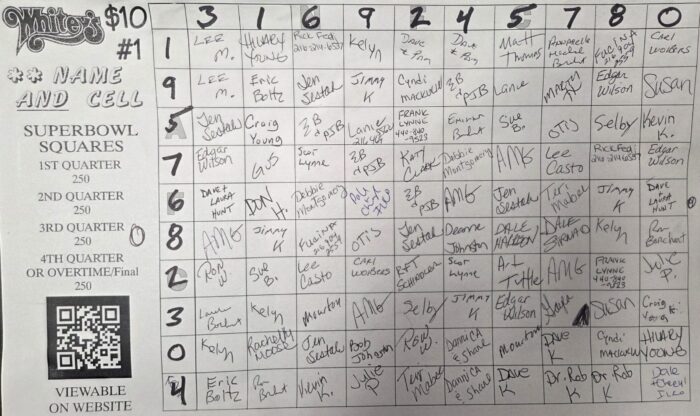 White's $10
#1
** NAME
AND CELL
SUPERBOWL
SQUARES
1ST QUARTER
250
2ND QUARTER
250
3RD QUARTER 0
250
4TH QUARTER
OR OVERTIME/Final
250
VIEWABLE
ON WEBSITE
3 1 6 9 2 4 5 7 8 0
1 LEE M. HILARY YOUNG Rick Fedi Kelyn Dave & Pam Dave & Pam Matt Thomas CARL WOLKERS
9 LEE M. Eric Boltz Jen Sestak Jimmy K Cyndi EB & PJB Lance Edgar Wilson Susan
5 Jen Sestak Craig Young EB & PJB Lance FRANK LYNNE 440-840-9523 Sue B. OTIS Selby Kevin K.
7 Edgar Wilson GUS Scot Lynne EB & PJB Debbie Montgomery AMG Lee Casto Rick Fedi Edgar Wilson
6 DAVE & LAURA HUNT DON H. Debbie Montgomery EB & PJB AMG Jen Sestak Turi Mabel Jimmy K DAVE & LAURA HUNT 0
8 AMG Jimmy K OTIS Jen Sestak Deanne Johnston DALE DALE Kelyn Ron
2 RON W. Sue B. Lee Casto CARL WOLKERS Scot Lynne Art Tuttle AMG FRANK LYNNE 440-840-9523 Julie P.
3 Kelyn Mourton AMG Selby JIMMY K Edgar Wilson Susan Craig Young
0 Kelyn Rachelly MOOSE Jen Sestak Bob Johnston RON W. DANNICA & Shane Mourton DAVE K Cyndi HILARY YOUNG
4 Eric Boltz Ron Kevin K. Julie P Turi Mabel DANNICA & Shane DAVE K Dr. Rob K Dr. Rob K Dale & Cheryl